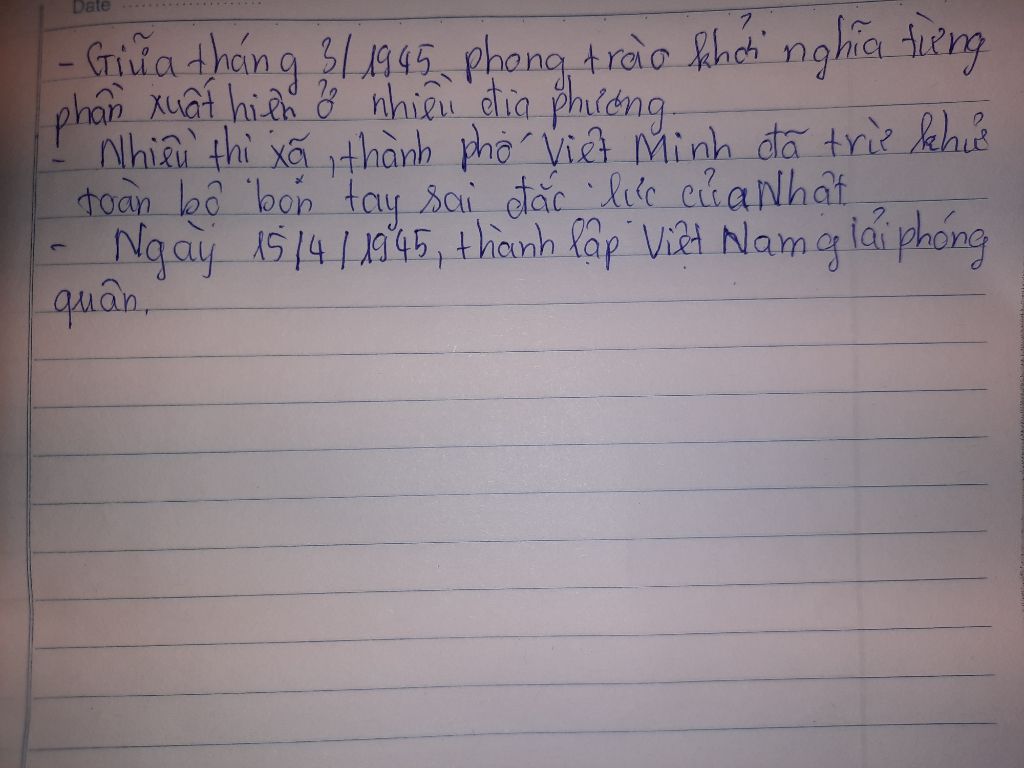 Date
- Giữa tháng 3/1945 phong trào khởi nghĩa từng
phần xuất hiện ở nhiều địa phương.
- Nhiều thị xã, thành phố Việt Minh đã trừ khử
toàn bộ bọn tay sai đắc lực của Nhật
- Ngày 15/4/1945, thành lập Việt Nam giải phóng
quân.